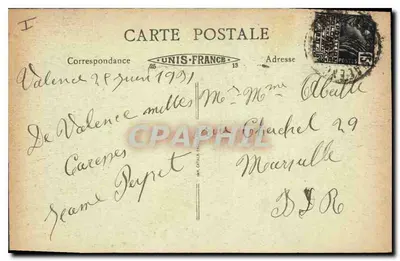 I
CARTE POSTALE
Correspondance
UNIS-FRANCE
Adresse
Valence 28 juin 1931
De Valence milles
Caresses
Jeanne Peyret
Mr Mme Abeille
rue 29
Marseille
B D R
CPARAMA